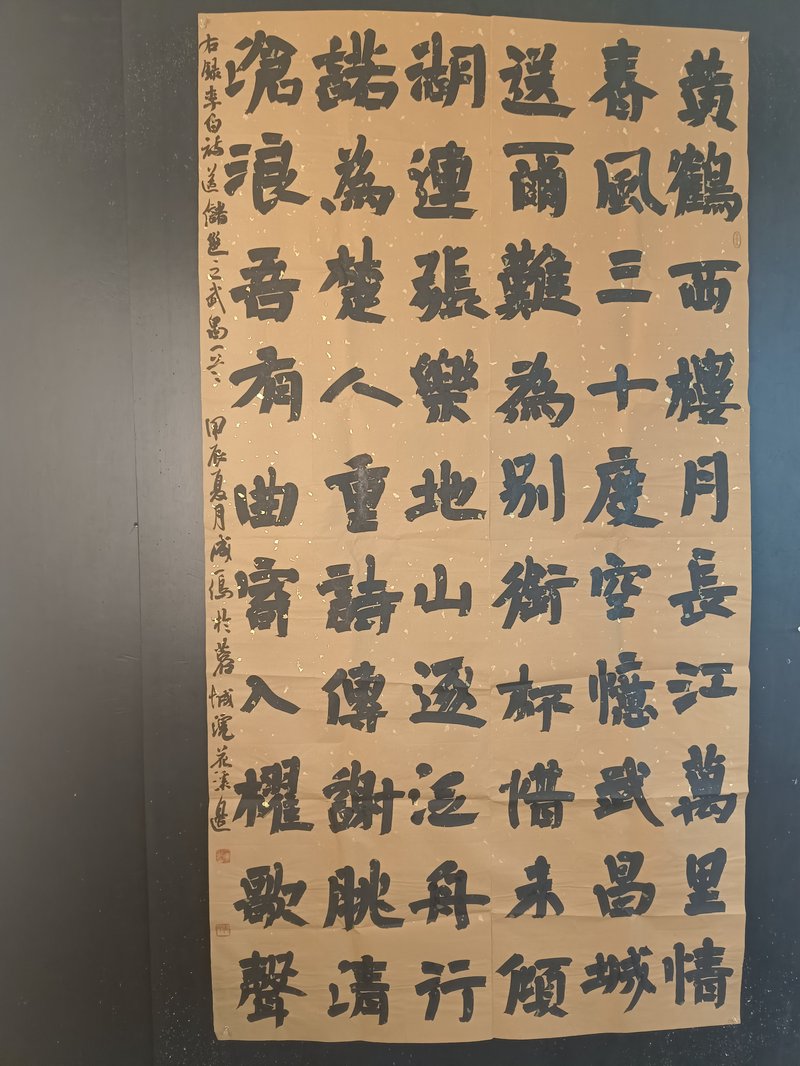 黄鶴西樓月長江萬里情
春風三十度空憶武昌城
送爾難為別銜杯惜未傾
湖連張樂地山逐泛舟行
諾為楚人重詩傳謝朓清
滄浪吾有曲寄入櫂歌聲
右録李白詩送儲邕之武昌一首 甲辰夏月成 於蓉城浣花溪邊